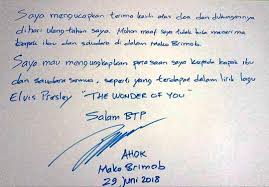 Saya mengucapkan terima kasih atas doa dan dukungannya
dihari ulang-tahun saya. Mohon maaf saya tidak bisa menerima
bapak ibu dan saudara di dalam Mako Brimob.
Saya mau mengungkapkan perasaan saya kepada bapak ibu
dan saudara semua, seperti yang terdapat dalam lirik lagu
Elvis Presley "THE WONDER OF YOU"
Salam BTP
AHOK
Mako Brimob
29 Juni 2018